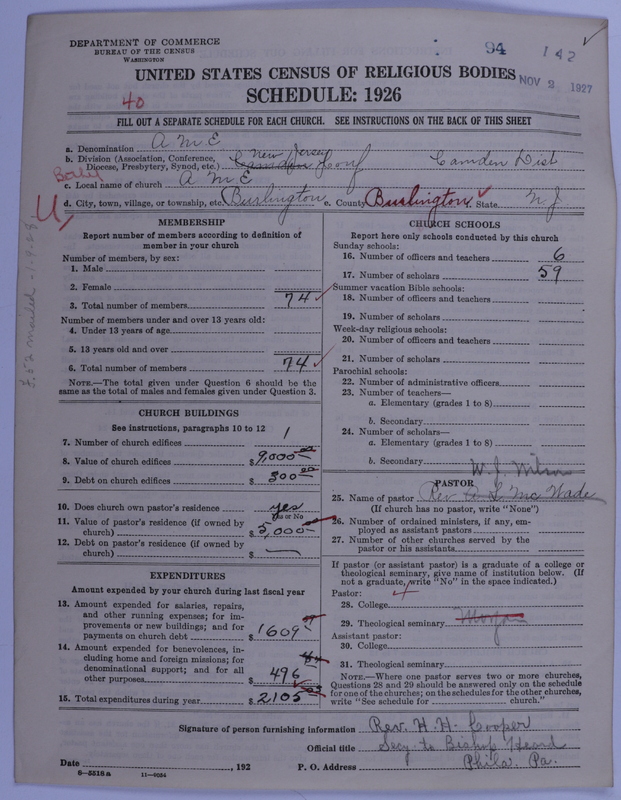 DEPARTMENT OF COMMERCE
BUREAU OF THE CENSUS
WASHINGTON
94 142
NOV 2 1927
UNITED STATES CENSUS OF RELIGIOUS BODIES
SCHEDULE: 1926
40
FILL OUT A SEPARATE SCHEDULE FOR EACH CHURCH. SEE INSTRUCTIONS ON THE BACK OF THIS SHEET
a. Denomination A M E
b. Division (Association, Conference, Diocese, Presbytery, Synod, etc.) New Jersey Camden Conf Camden Dist
c. Local name of church Bethel A M E
d. City, town, village, or township, etc. Burlington e. County Burlington f. State N J
MEMBERSHIP
Report number of members according to definition of
member in your church
Number of members, by sex:
1. Male
2. Female
3. Total number of members 74
Number of members under and over 13 years old:
4. Under 13 years of age
5. 13 years old and over
6. Total number of members 74
NOTE.—The total given under Question 6 should be the
same as the total of males and females given under Question 3.
CHURCH BUILDINGS
See instructions, paragraphs 10 to 12
7. Number of church edifices 1
8. Value of church edifices $9,000 00
9. Debt on church edifices $300 00
10. Does church own pastor's residence yes
Yes or No
11. Value of pastor's residence (if owned by
church) $5,000
12. Debt on pastor's residence (if owned by
church) $ —
EXPENDITURES
Amount expended by your church during last fiscal year
13. Amount expended for salaries, repairs,
and other running expenses; for im-
provements or new buildings; and for
payments on church debt $1609
14. Amount expended for benevolences, in-
cluding home and foreign missions; for
denominational support; and for all
other purposes $496
15. Total expenditures during year $2105
CHURCH SCHOOLS
Report here only schools conducted by this church
Sunday schools:
16. Number of officers and teachers 6
17. Number of scholars 59
Summer vacation Bible schools:
18. Number of officers and teachers
19. Number of scholars
Week-day religious schools:
20. Number of officers and teachers
21. Number of scholars
Parochial schools:
22. Number of administrative officers
23. Number of teachers—
a. Elementary (grades 1 to 8)
b. Secondary
24. Number of scholars—
a. Elementary (grades 1 to 8)
b. Secondary
W. J. Wilson
PASTOR
25. Name of pastor Rev Mc Wade
(If church has no pastor, write "None")
26. Number of ordained ministers, if any, em-
ployed as assistant pastors
27. Number of other churches served by the
pastor or his assistants
If pastor (or assistant pastor) is a graduate of a college or
theological seminary, give name of institution below. (If
not a graduate, write "No" in the space indicated.)
Pastor:
28. College
29. Theological seminary Morgan
Assistant pastor:
30. College
31. Theological seminary
NOTE.—Where one pastor serves two or more churches,
Questions 28 and 29 should be answered only on the schedule
for one of the churches; on the schedules for the other churches,
write "See schedule for church."
Signature of person furnishing information Rev. H. H. Cooper
Official title Secy to Bishop Heard
Date , 192 P. O. Address Phila. Pa.
8—5518a 11—9034